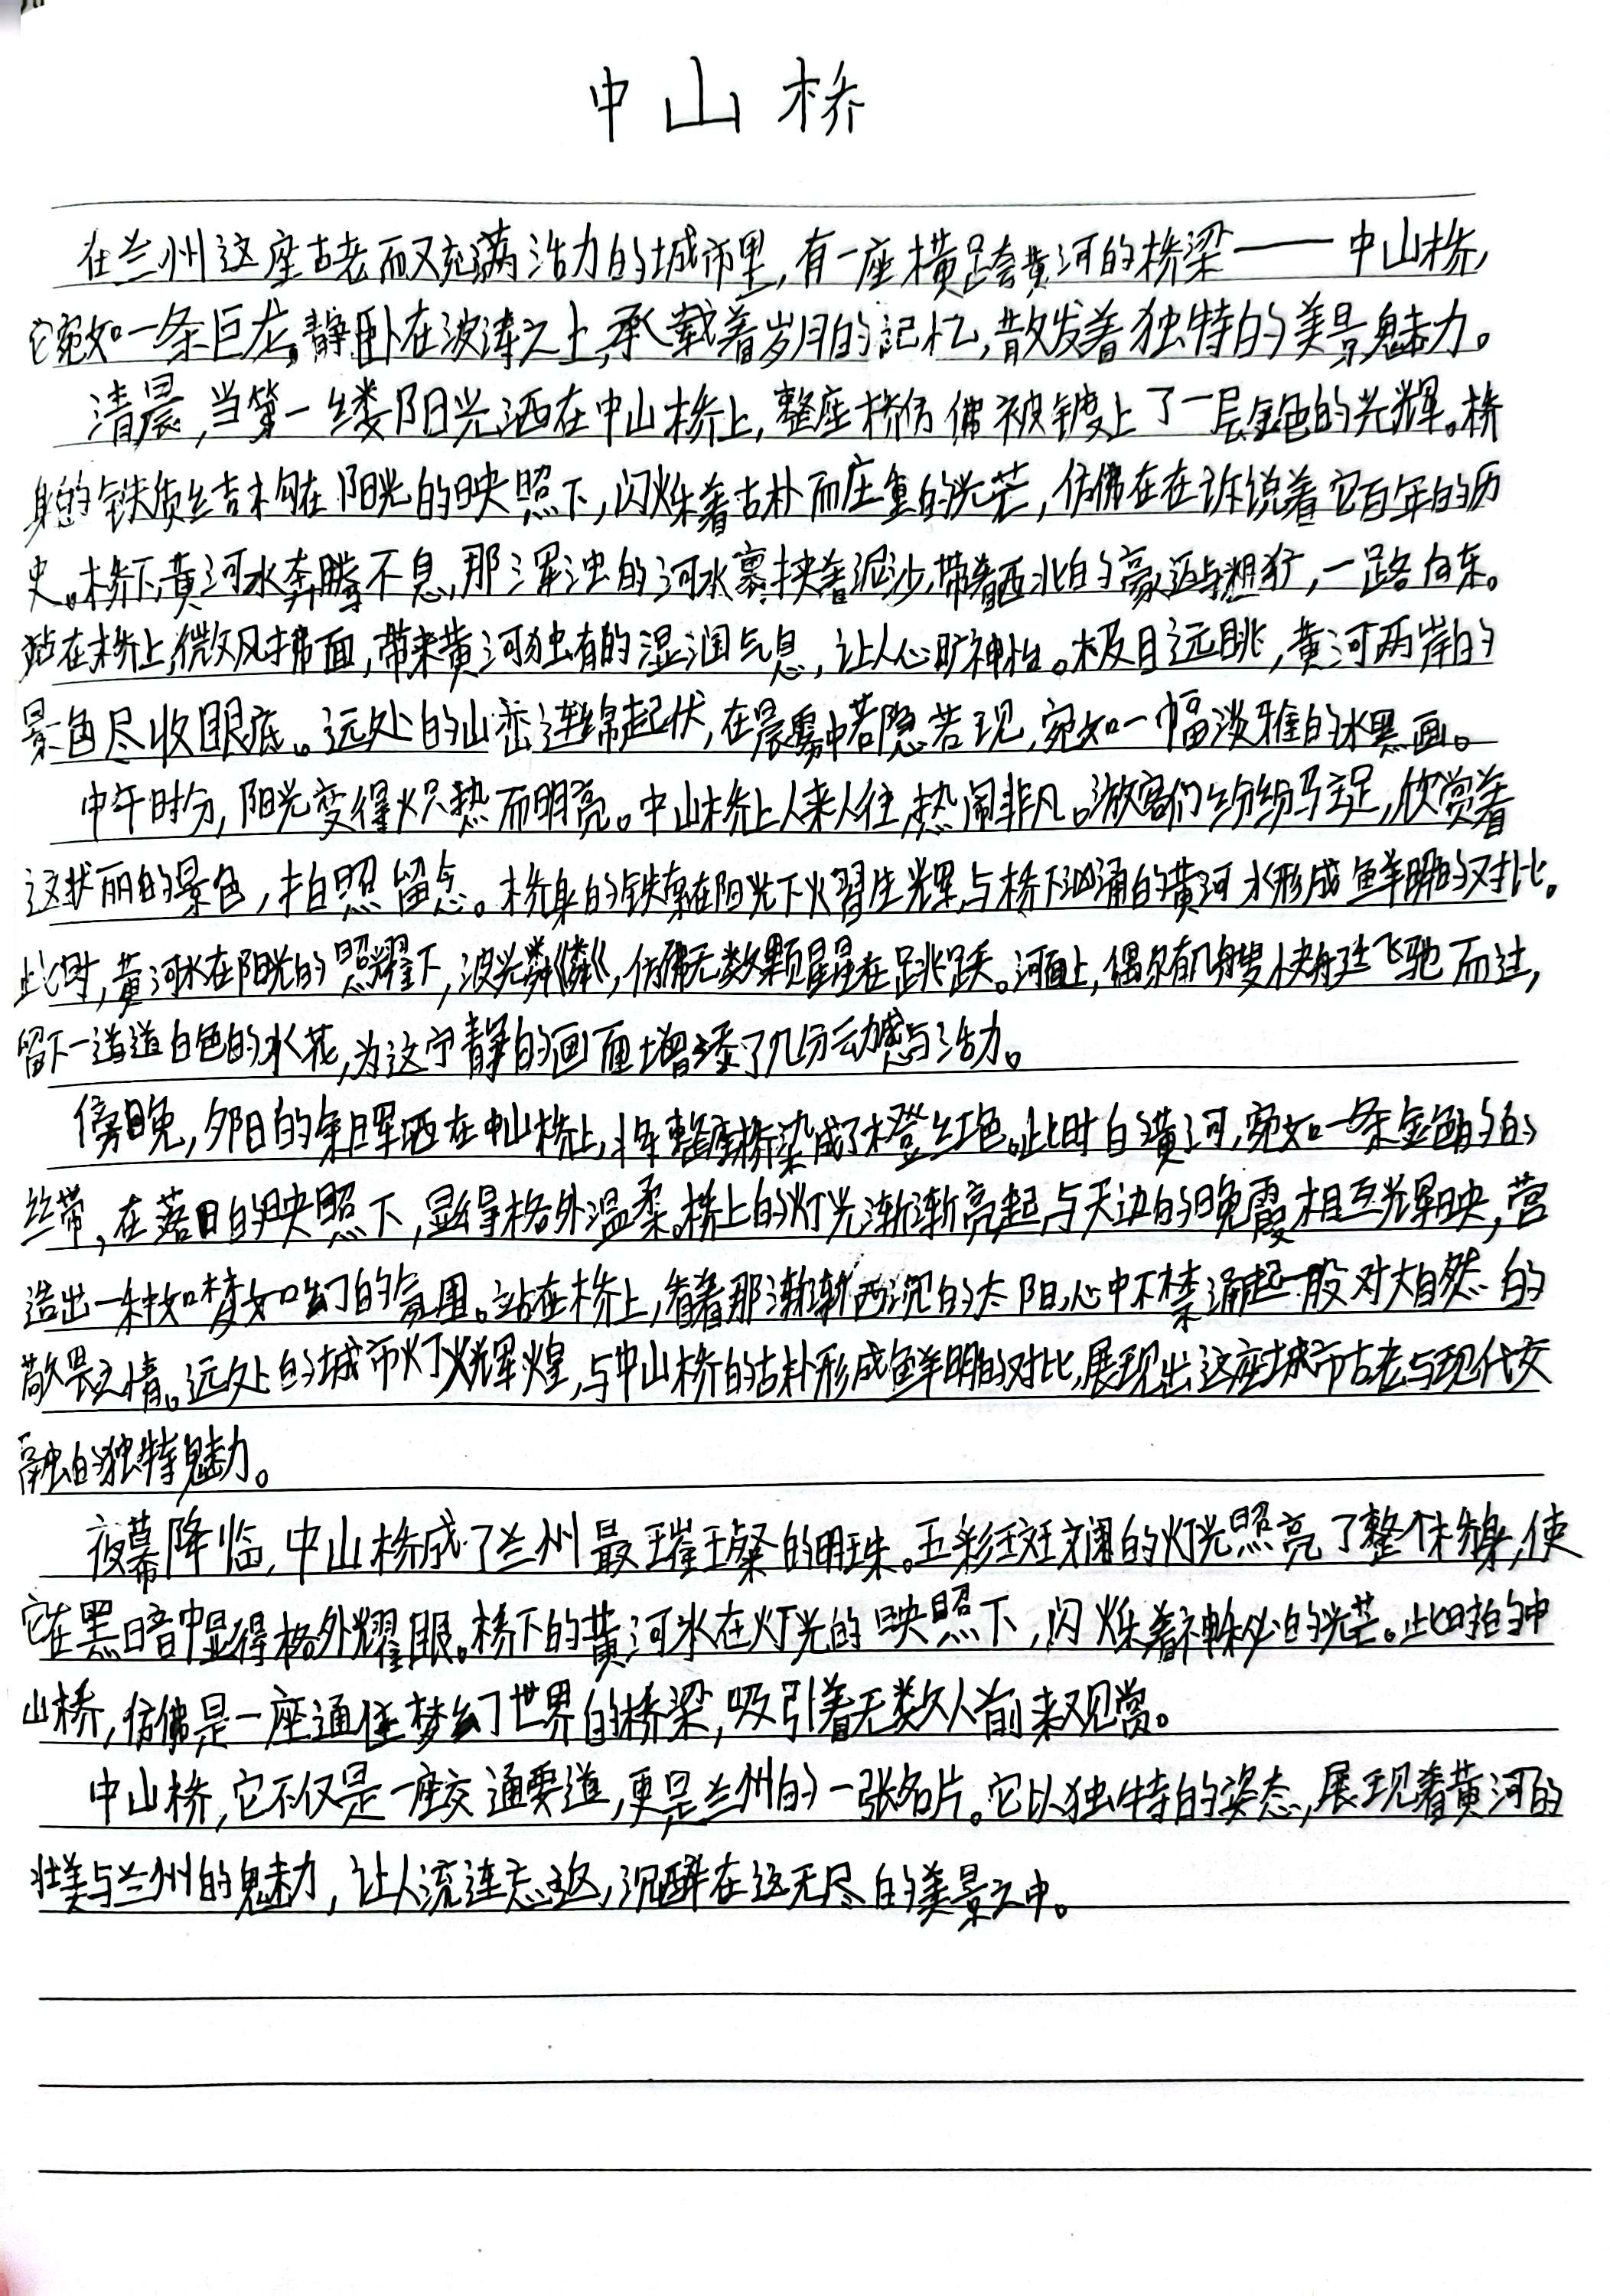 中山桥
在兰州这座古老而又充满活力的城市里,有一座横跨黄河的桥梁——中山桥,
它宛如一条巨龙,静卧在波涛之上,承载着岁月的记忆,散发着独特的美景魅力。
清晨,当第一缕阳光洒在中山桥上,整座桥仿佛被镀上了一层金色的光辉。桥
身的铁质结构在阳光的映照下,闪烁着古朴而庄重的光芒,仿佛在在诉说着它百年的历
史。桥下,黄河水奔腾不息,那浑浊的河水裹挟着泥沙,带着西北的豪迈与粗犷,一路向东。
站在桥上,微风拂面,带来黄河独有的湿润气息,让人心旷神怡。极目远眺,黄河两岸的
景色尽收眼底。远处的山峦连绵起伏,在晨雾中若隐若现,宛如一幅淡雅的水墨画。
中午时分,阳光变得炽热而明亮。中山桥上人来人往,热闹非凡。游客们纷纷驻足,欣赏着
这壮丽的景色,拍照留念。桥身的铁索在阳光下熠生辉,与桥下汹涌的黄河水形成鲜明的对比。
此时,黄河水在阳光的照耀下,波光粼粼,仿佛无数颗星星在跳跃。河面上,偶尔有几艘快艇飞驰而过,
留下一道道白色的水花,为这宁静的画面增添了几分动感与活力。
傍晚,夕阳的余晖洒在中山桥上,将整座桥染成了橙红色。此时的黄河,宛如一条金色的的
丝带,在落日的映照下,显得格外温柔。桥上的灯光渐渐亮起,与天边的晚霞相互辉映,营
造出一种如梦如幻的氛围。站在桥上,看着那渐渐西沉的太阳,心中不禁涌起一股对大自然的
敬畏之情。远处的城市灯火辉煌,与中山桥的古朴形成鲜明的对比,展现出这座城市古老与现代交
融的独特魅力。
夜幕降临,中山桥成了兰州最璀璨的明珠。五彩斑斓的灯光照亮了整个桥身,使
它在黑暗中显得格外耀眼。桥下的黄河水在灯光的映照下,闪烁着神秘的光芒。此时的中
山桥,仿佛是一座通往梦幻世界的桥梁,吸引着无数人前来观赏。
中山桥,它不仅是一座交通要道,更是兰州的一张名片。它以独特的姿态,展现着黄河的
壮美与兰州的魅力,让人流连忘返,沉醉在这无尽的美景之中。